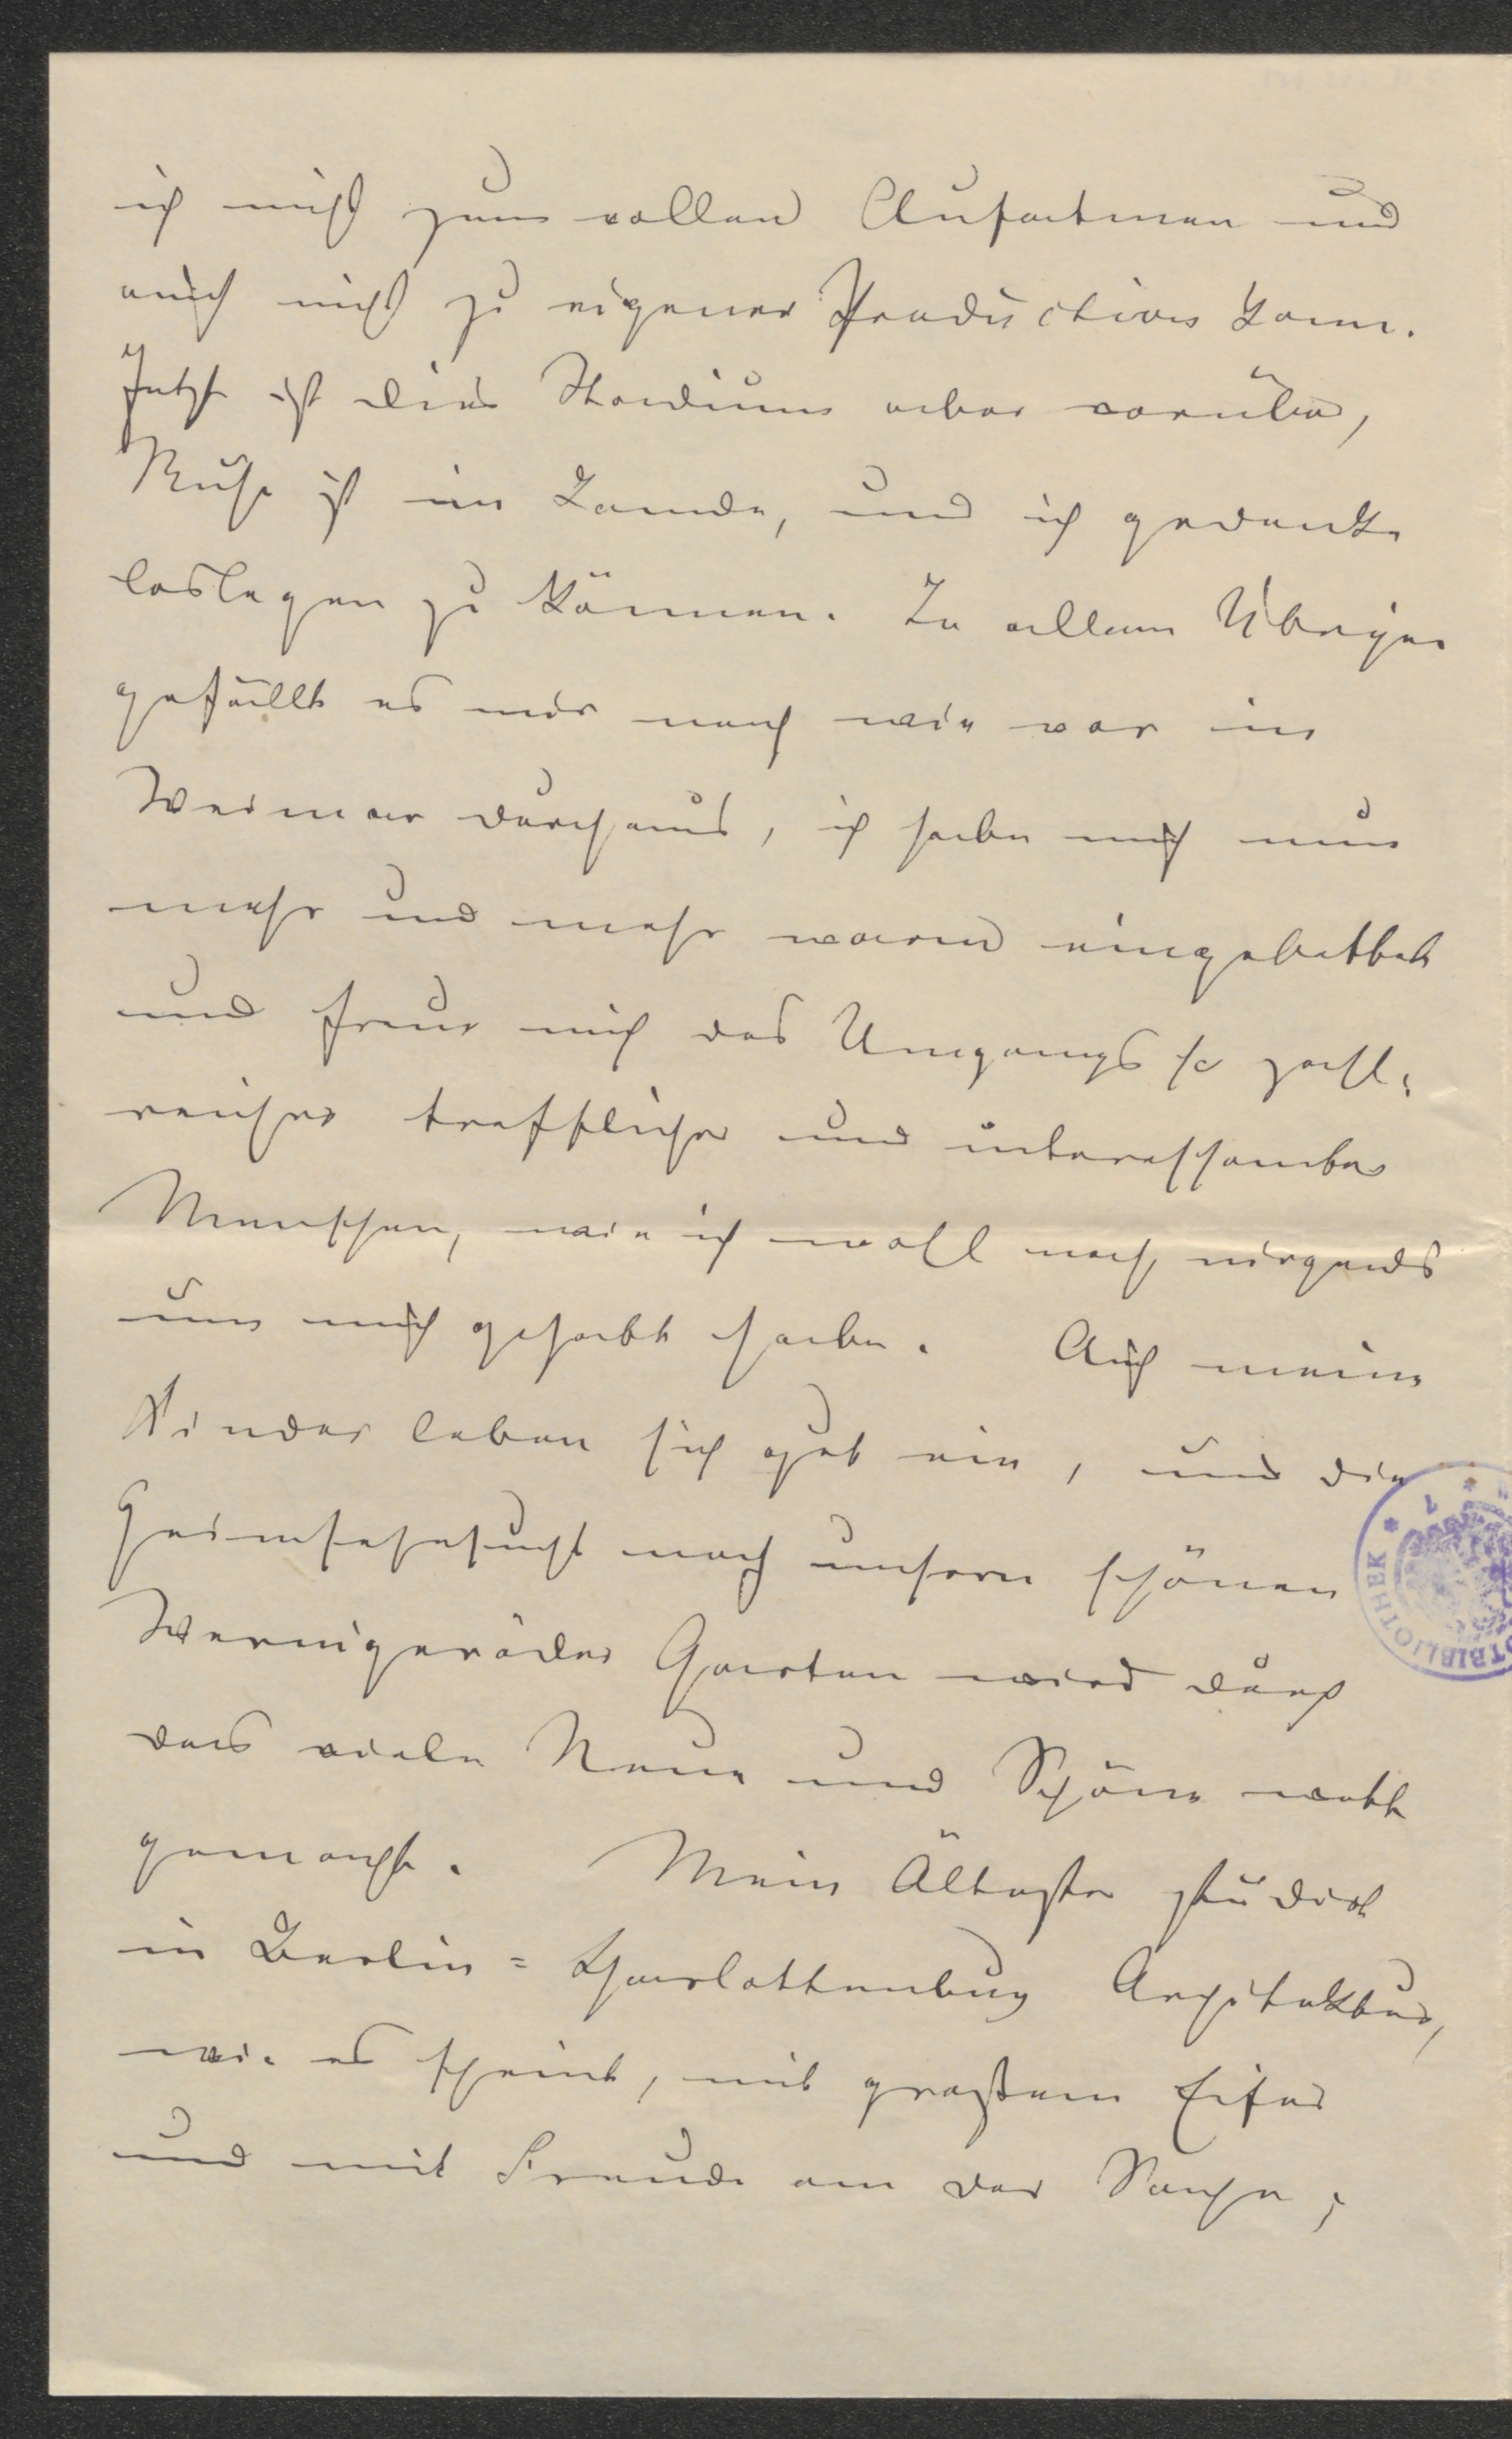 ich nicht zum vollen Aufatmen und
auch nicht zu eigener Production kam.
Jetzt ist dies Stadium aber vorüber,
Ruhe ist im Lande, und ich gedenke
loslegen zu können. In allem Übrigen
gefällt es mir nach wie vor in
Weimar durchaus, ich habe mich nun
mehr und mehr warm eingebettet
und freue mich des Umgangs so zahl-
reicher trefflicher und interessanter
Menschen, wie ich wohl noch nirgends
um mich gehabt habe. Auch meine
Kinder leben sich gut ein, und die
Heimsehnsucht nach unserm schönen
Wernigeröder Garten wird durch
das viele Neue und Schöne wett
gemacht. Mein Ältester studirt
in Berlin-Charlottenburg Architektur,
wie es scheint, mit großem Eifer
und mit Freude an der Sache;